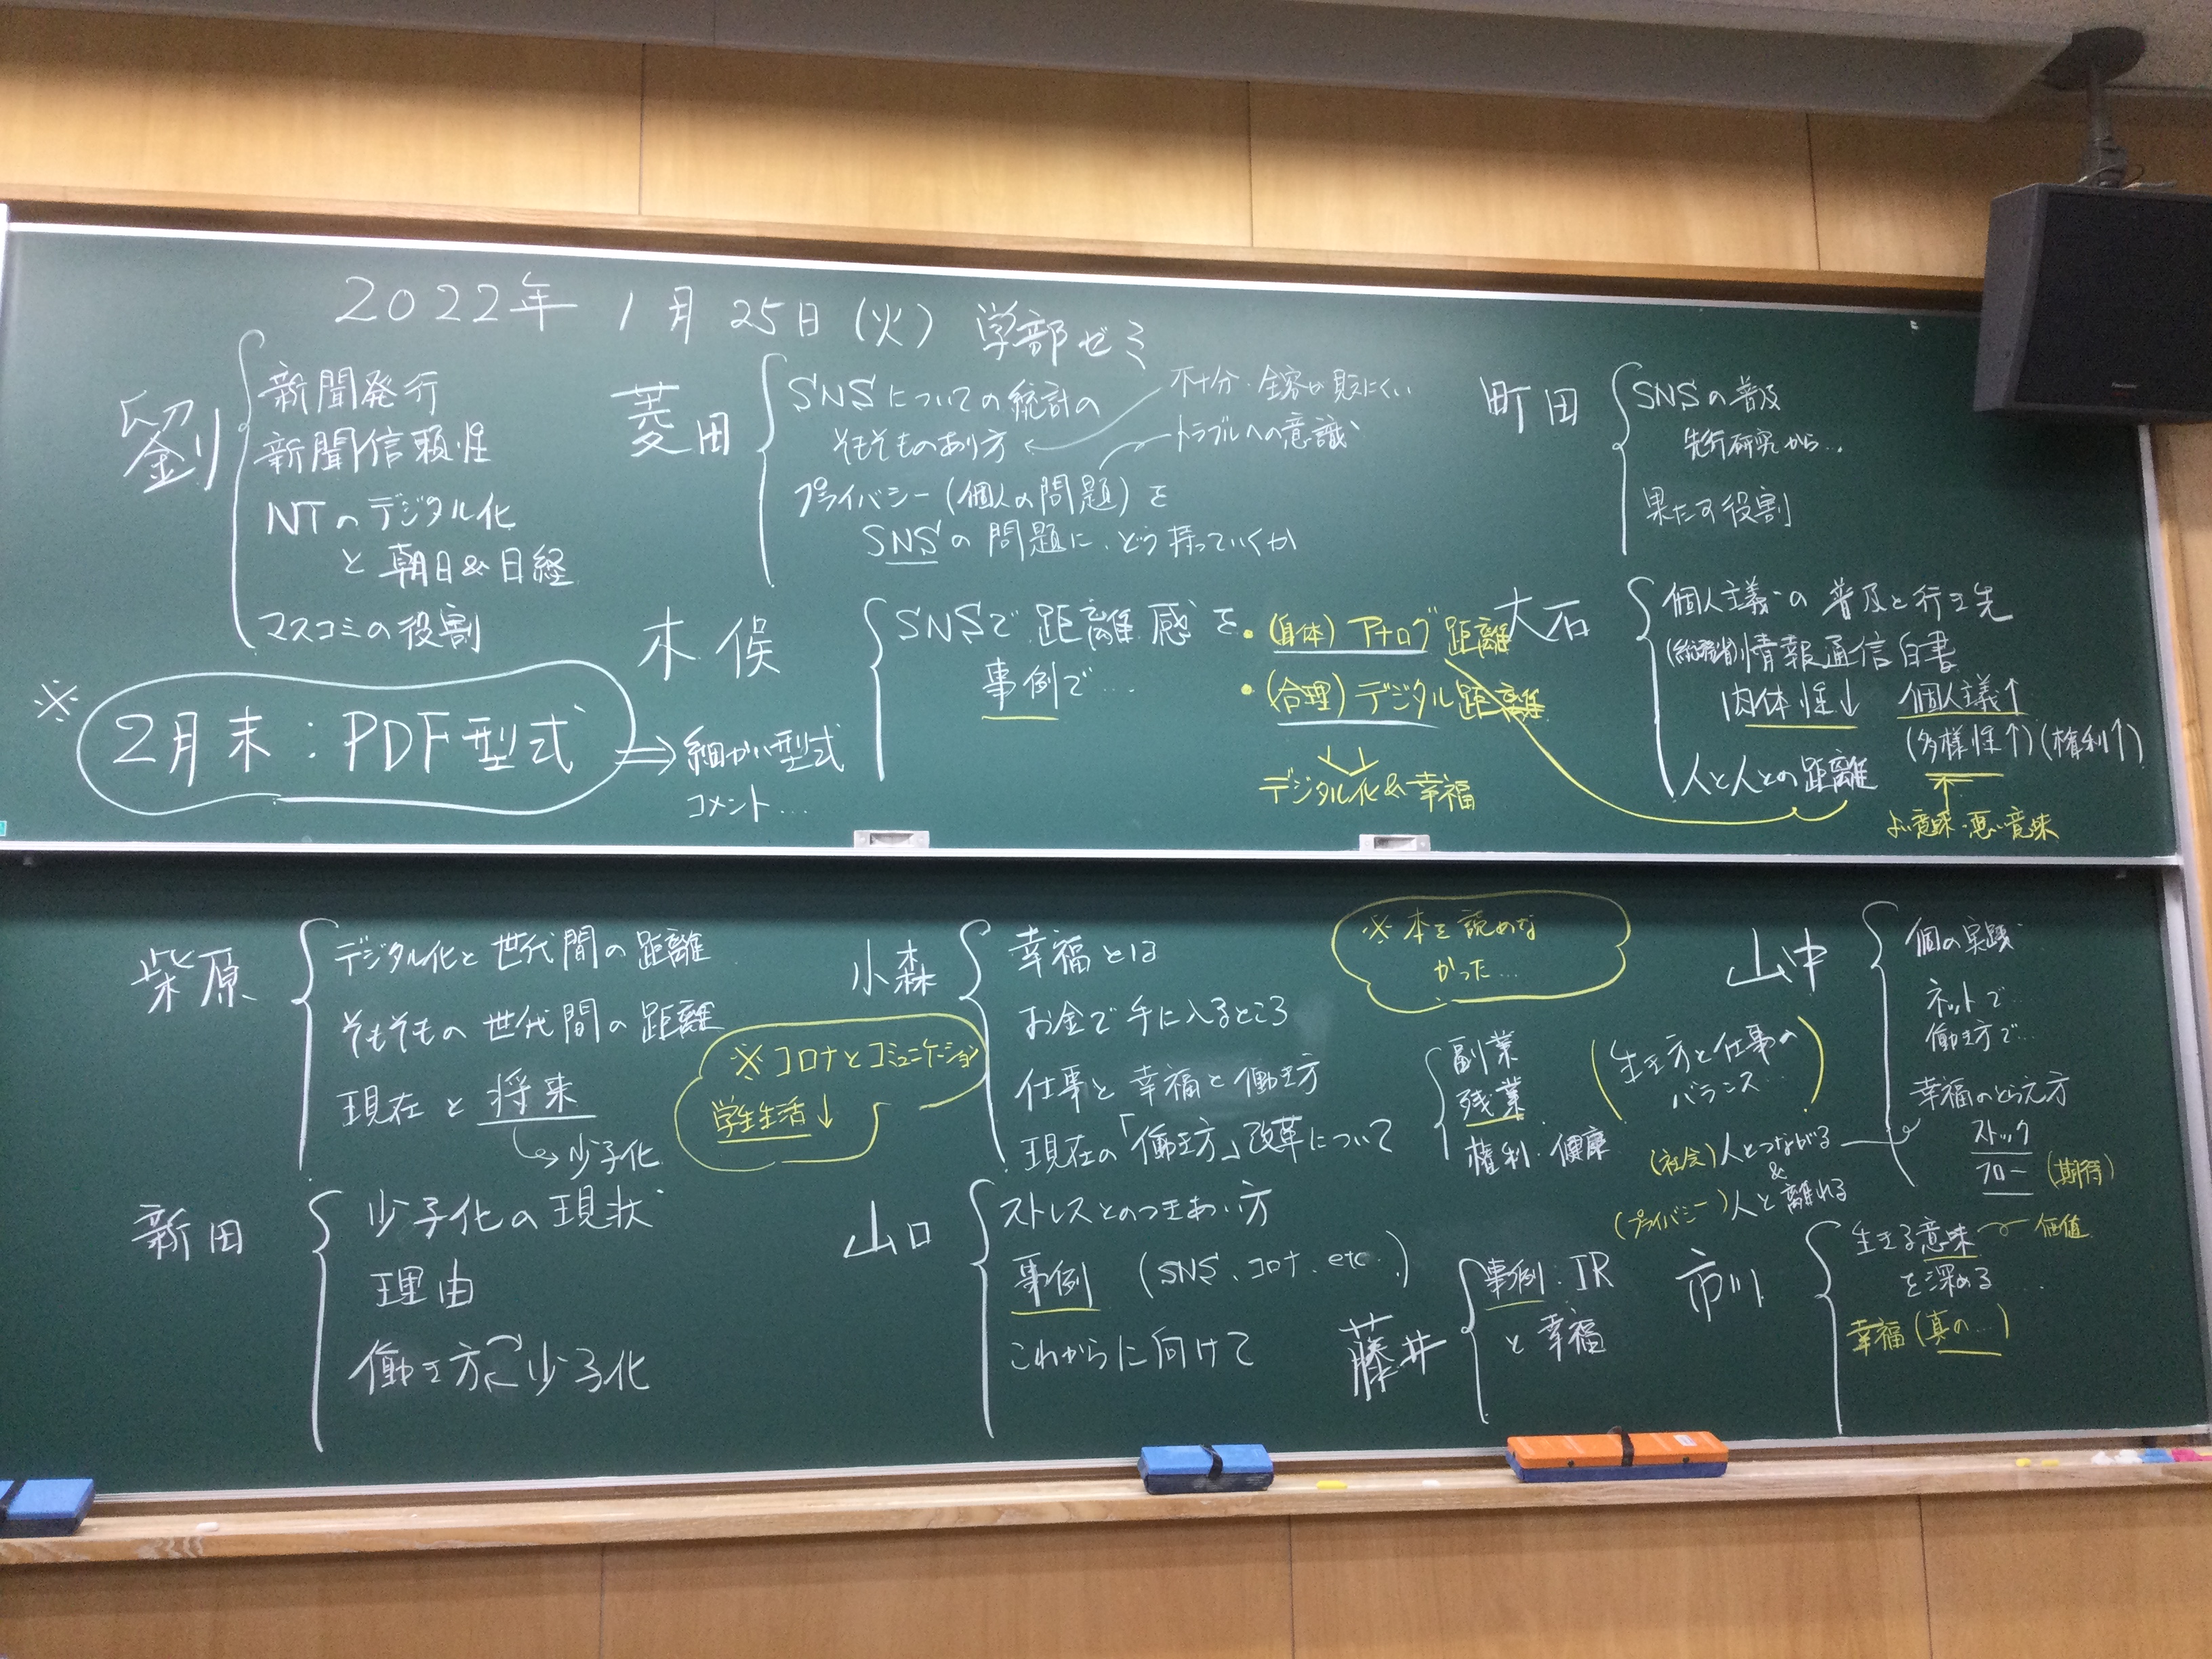 2022年 1月 25日(火) 学部ゼミ
劉
新聞発行
新聞信頼性
NTのデジタル化
と 朝日&日経
マスコミの役割
※ 2月末：PDF型式
⇒ 細かい型式
コメント…
菱田
SNSについての統計の
そもそものあり方
不十分・全容が見えにくい
トラブルへの意識
プライバシー(個人の問題)を
SNSの問題に、どう持っていくか
木俣
SNSで距離感を
事例で…
・(身体) アナログ距離
・(合理) デジタル距離
デジタル化&幸福
町田
SNSの普及
先行研究から…
果たす役割
大石
個人主義の普及と行き先
(総務省)情報通信白書
肉体性↓ 個人主義↑
(多様性↑)(権利↑)
人と人との距離
よい意味・悪い意味
柴原
デジタル化と世代間の距離
そもそもの世代間の距離
現在と将来
少子化
※コロナとコミュニケーション
学生生活↓
新田
少子化の現状
理由
働き方 少子化
小森
幸福とは
お金で手に入るところ
仕事と幸福と働き方
現在の「働き方」改革について
副業
残業
権利・健康
※本を読めな
かった…
山口
ストレスとのつきあい方
事例 (SNS、コロナ、etc…)
これからに向けて
藤井
事例：IR
と幸福
山中
個の実践
ネットで…
働き方で…
幸福のとらえ方
ストック
フロー (期待)
(生き方と仕事の
バランス…)
(社会)人とつながる
&
(プライバシー)人と離れる
市川
生きる意味 価値
を深める…
幸福(真の…)
Panasonic